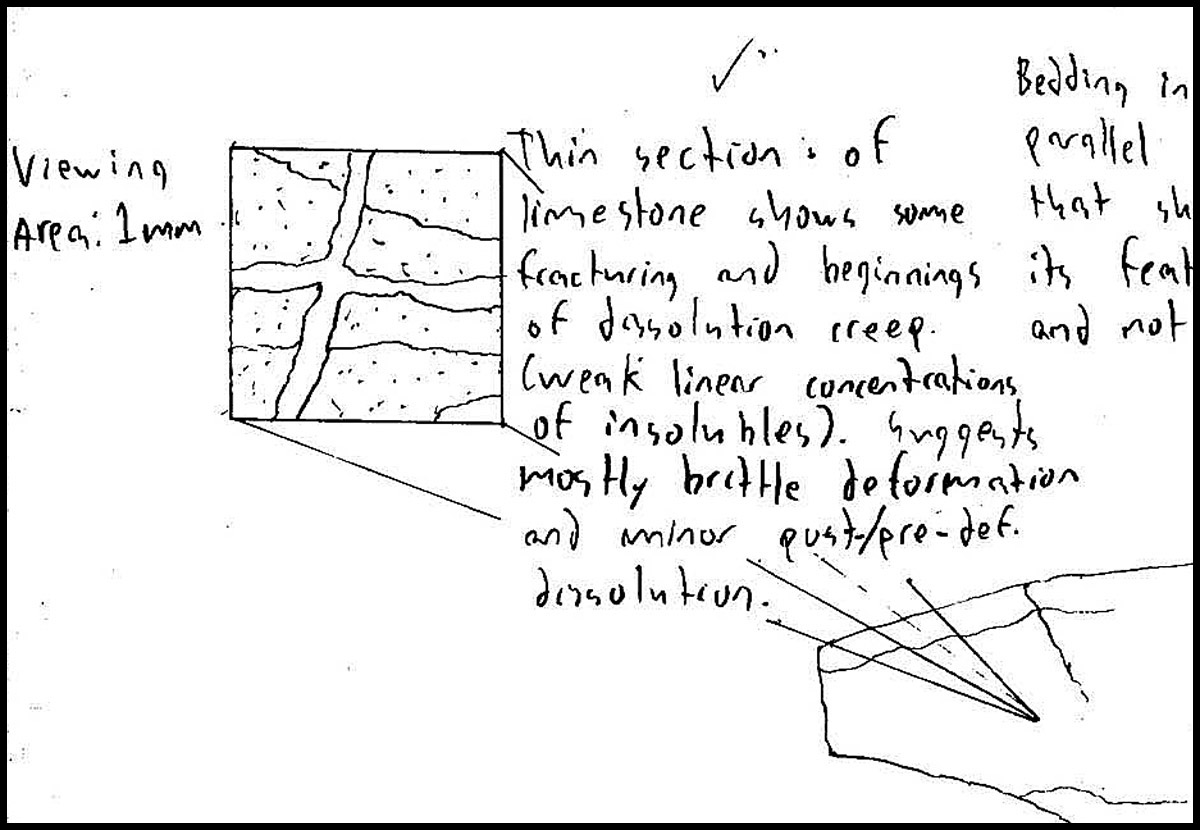 Viewing
Area: 1mm
Thin section: of
limestone shows some
fracturing and beginnings
of dissolution creep.
(weak linear concentrations
of insolubles). Suggests
mostly brittle deformation
and minor post-/pre-def.
dissolution.
Bedding in
parallel
that sh
its feat
and not